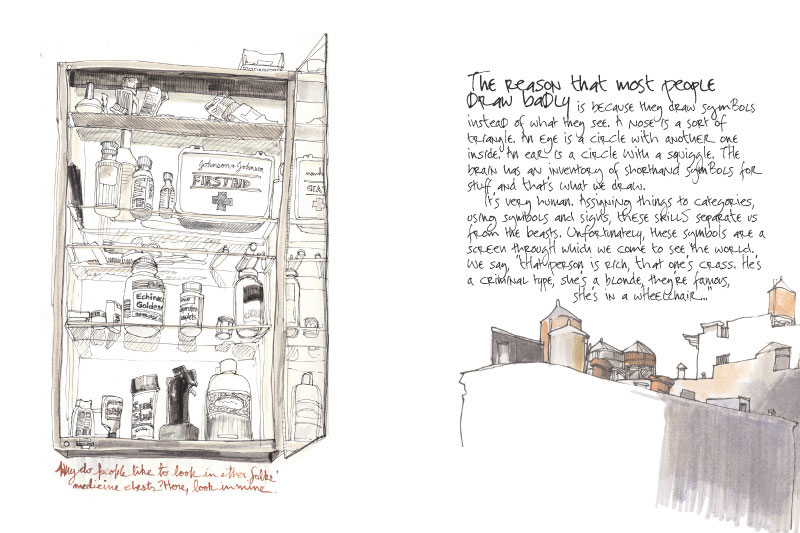 Johnson & Johnson
FIRST AID
Echinac
Golden
Why do people like to look in other folks'
medicine chests? Here, look in mine.
The reason that most people
draw badly is because they draw symbols
instead of what they see. A nose is a sort of
triangle. An eye is a circle with another one
inside. An ear is a circle with a squiggle. The
brain has an inventory of shorthand symbols for
stuff and that's what we draw.
It's very human. Assigning things to categories,
using symbols and signs, these skills separate us
from the beasts. Unfortunately, these symbols are a
screen through which we come to see the world.
We say, "that person is rich, that one's crass. He's
a criminal type, she's a blonde, they're famous,
she's in a wheelchair..."